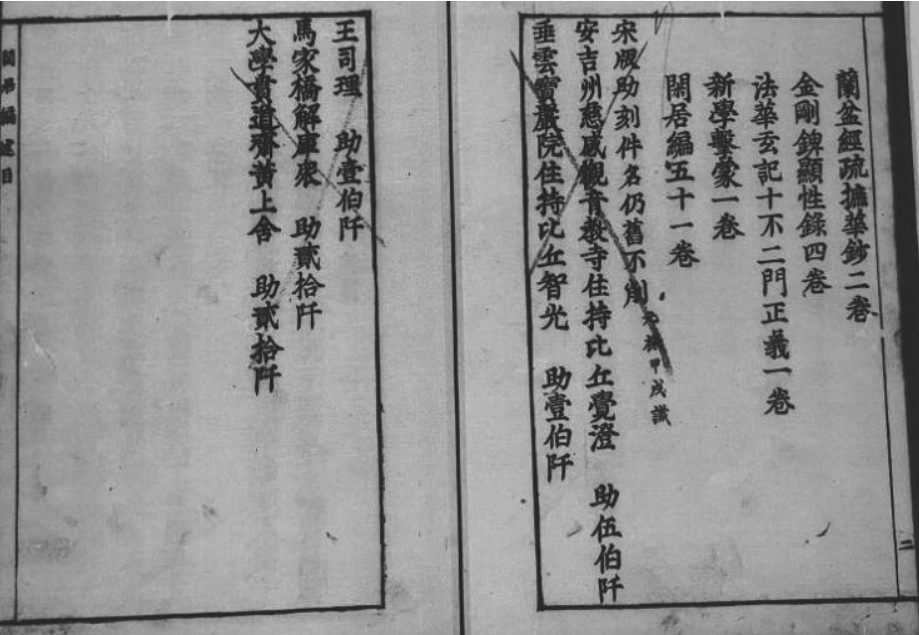 蘭盆經疏摭華鈔二卷
金剛錍顯性錄四卷
法華玄記十不二門正義一卷
新學擊蒙一卷
閑居編五十一卷
宋版助刻件名仍舊不削 元祿甲戌識
安吉州慈感觀音教寺住持比丘覺澄 助伍伯阡
垂雲寶嚴院住持比丘智光 助壹伯阡
二
王司理 助壹伯阡
馬家橋解庫張 助貳拾阡
大學貫道齋黃上舍 助貳拾阡
閑居編述目